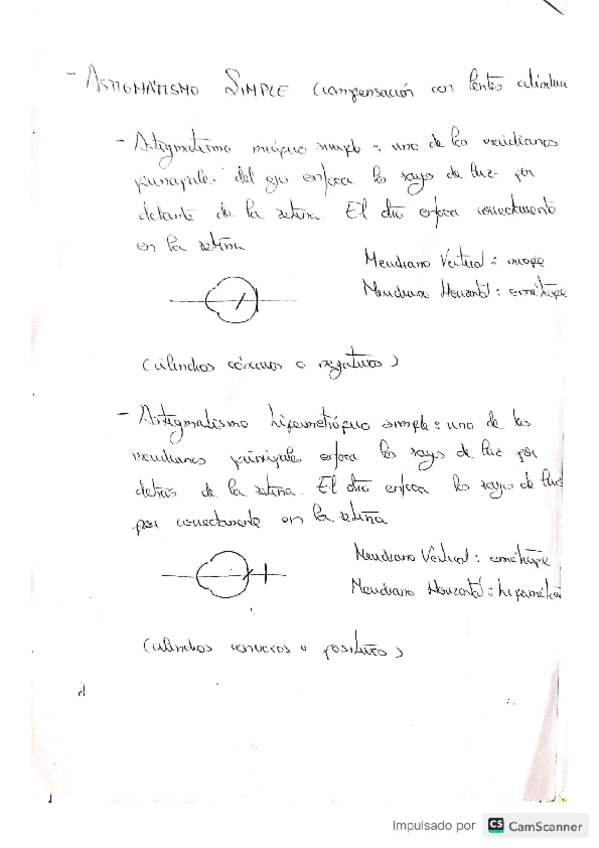 - ASTIGMATISMO SIMPLE (compensación con lentes cilíndrica
- Astigmatismo miópico simple: uno de los meridianos
principales del ojo enfoca los rayos de luz por
delante de la retina. El otro enfoca correctamente
en la retina
Meridiano Vertical: miope
Meridiano Horizontal: emétrope
(cilindros cóncavos o negativos)
- Astigmatismo hipermetrópico simple: uno de los
meridianos principales enfoca los rayos de luz por
detrás de la retina. El otro enfoca los rayos de luz
por correctamente en la retina
Meridiano Vertical: emétrope
Meridiano Horizontal: hipermétro
(cilindros convexos o positivos)
Impulsado por CS CamScanner